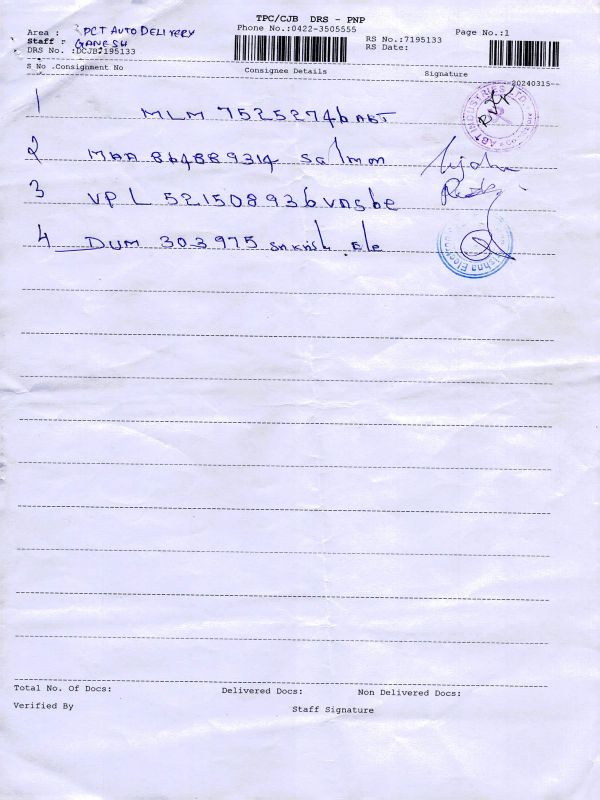 TPC/CJB DRS - PNP
Area : PCT AUTO DELIVERY
Phone No.:0422-3505555
Page No.:1
Staff : GANESH
RS No.:7195133
DRS No. :DCJB7195133
RS Date:
S No .Consignment No Consignee Details Signature
20240315--
1 MLM 75252746 ABT
2 MAA 864889314 Salmon
3 VPL 521508936
4 DUM 303975 Ele
Total No. Of Docs: Delivered Docs: Non Delivered Docs:
Verified By Staff Signature
ABT INDUSTRIES LTD.